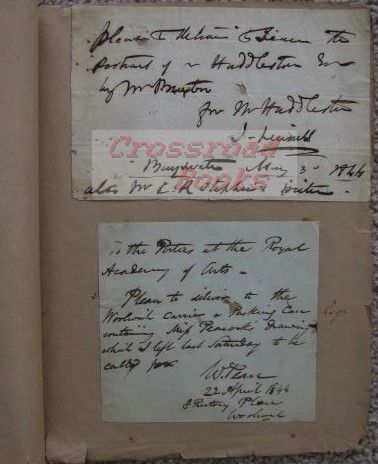 Please to deliver to bearer the
Portrait of
by Mr
for Mr Huddleston
J. Linnell
Bayswater May 3 1844
also Mr
Crossroad
Books
To the Porters at the Royal
Academy of Arts –
Please to deliver to the
Woolwich carrier a Packing Case
containing Miss Peacocks Drawing
which I left last Saturday to be
called for
W. Pease
22 April 1844
8 Rectory Place
Woolwich